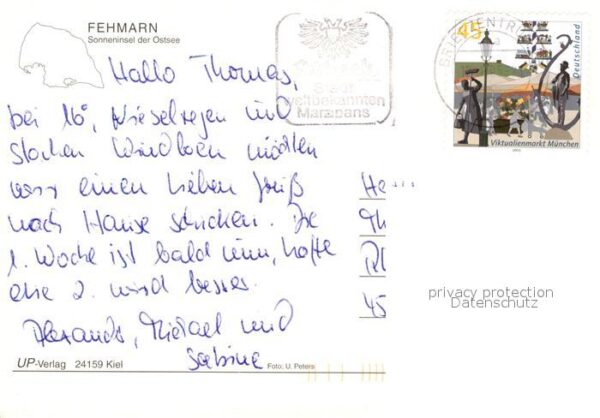 FEHMARN
Sonneninsel der Ostsee
Hallo Thomas,
bei 16°, Nieselregen und
starken Windböen möchten
wir einen lieben Gruß
nach Hause schicken. Die
1. Woche ist bald um, hoffe
die 2. wird besser.
Alexandra, Michael und
Sabine
UP-Verlag 24159 Kiel
Foto: U. Peters
Stadt
weltbekannten
Marzipans
BRIEFZENTR
45
Deutschland
Viktualienmarkt München
2003
He
Th
Pl
45
privacy protection
Datenschutz